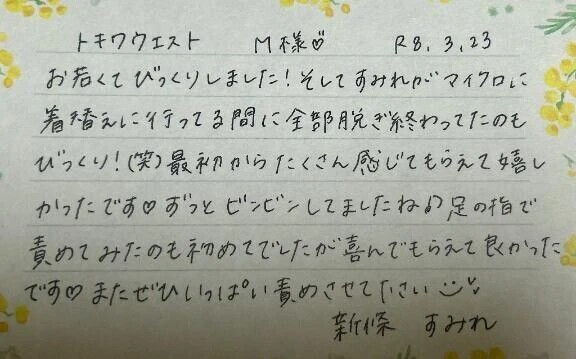 トキワウエスト M様♡ R8.3.23
お若くてびっくりしました!そしてすみれがマイクロに
着替えに行ってる間に全部脱ぎ終わってたのも
びっくり!(笑)最初からたくさん感じてもらえて嬉し
かったです♡ずっとビンビンしてましたね♪足の指で
責めてみたのも初めてでしたが喜んでもらえて良かった
です♡またぜひいっぱい責めさせてださい
新條 すみれ